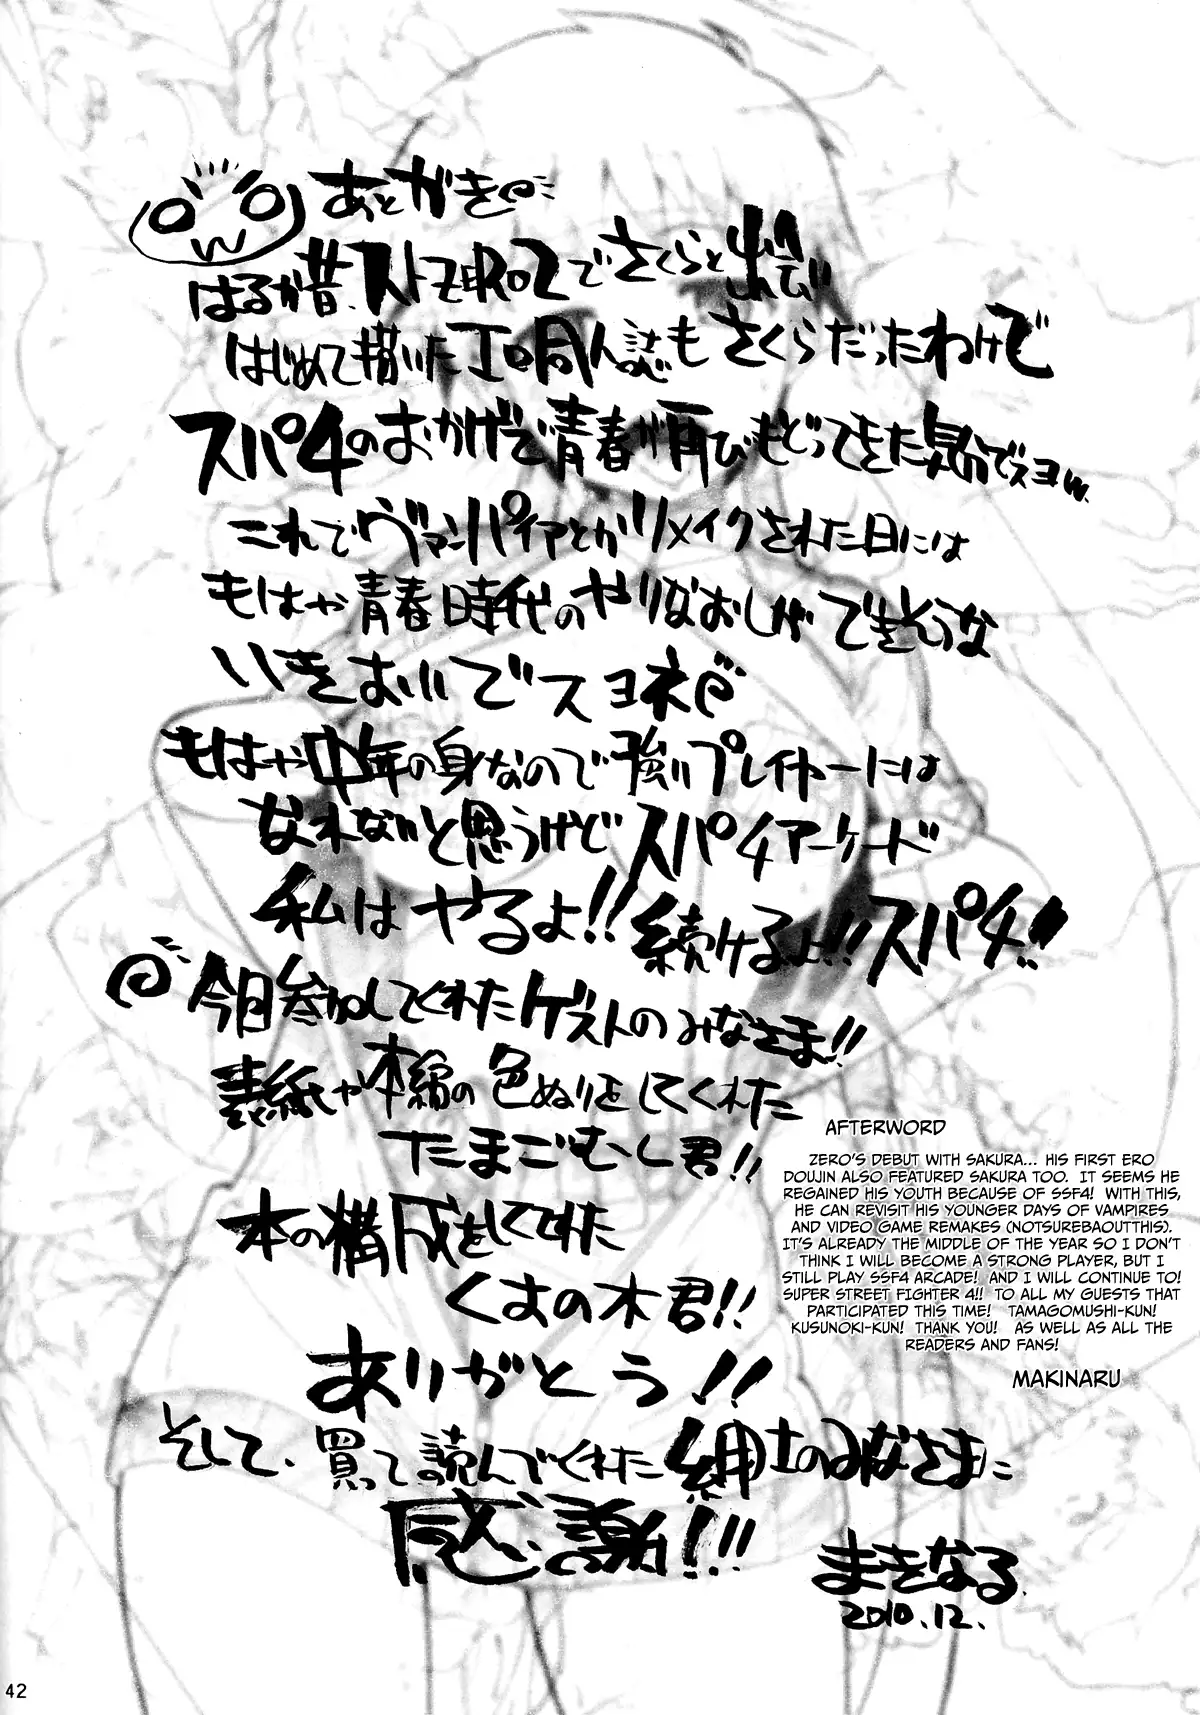 あとがき
はるか昔、ストZERO2でさくらと出会い
はじめて描いたエロ同人誌もさくらだったわけで
スパ4のおかげで青春が再びもどってきた気がでスヨw
これでヴァンパイアとかリメイクされた日には
もはや青春時代のやりなおしができそうな
いきおいでスヨネ
もはや中年の身なので強いプレイヤーには
なれないと思うけどスパ4アーケード
私はやるよ!!続けるよ!!スパ4!!
今回参加してくれたゲストのみなさま!!
表紙や本編の色ぬりをしてくれた
たまごむし君!!
本の構成をしてくれた
くすの木君!!
ありがとう!!
そして、買って読んでくれた紳士のみなさまに
感謝!!!
まきなる
2010.12.
AFTERWORD
ZERO'S DEBUT WITH SAKURA... HIS FIRST ERO
DOUJIN ALSO FEATURED SAKURA TOO. IT SEEMS HE
REGAINED HIS YOUTH BECAUSE OF SSF4! WITH THIS,
HE CAN REVISIT HIS YOUNGER DAYS OF VAMPIRES
AND VIDEO GAME REMAKES (NOTSUREBAOUTTHIS).
IT'S ALREADY THE MIDDLE OF THE YEAR SO I DON'T
THINK I WILL BECOME A STRONG PLAYER, BUT I
STILL PLAY SSF4 ARCADE! AND I WILL CONTINUE TO!
SUPER STREET FIGHTER 4!! TO ALL MY GUESTS THAT
PARTICIPATED THIS TIME! TAMAGOMUSHI-KUN!
KUSUNOKI-KUN! THANK YOU! AS WELL AS ALL THE
READERS AND FANS!
MAKINARU
42